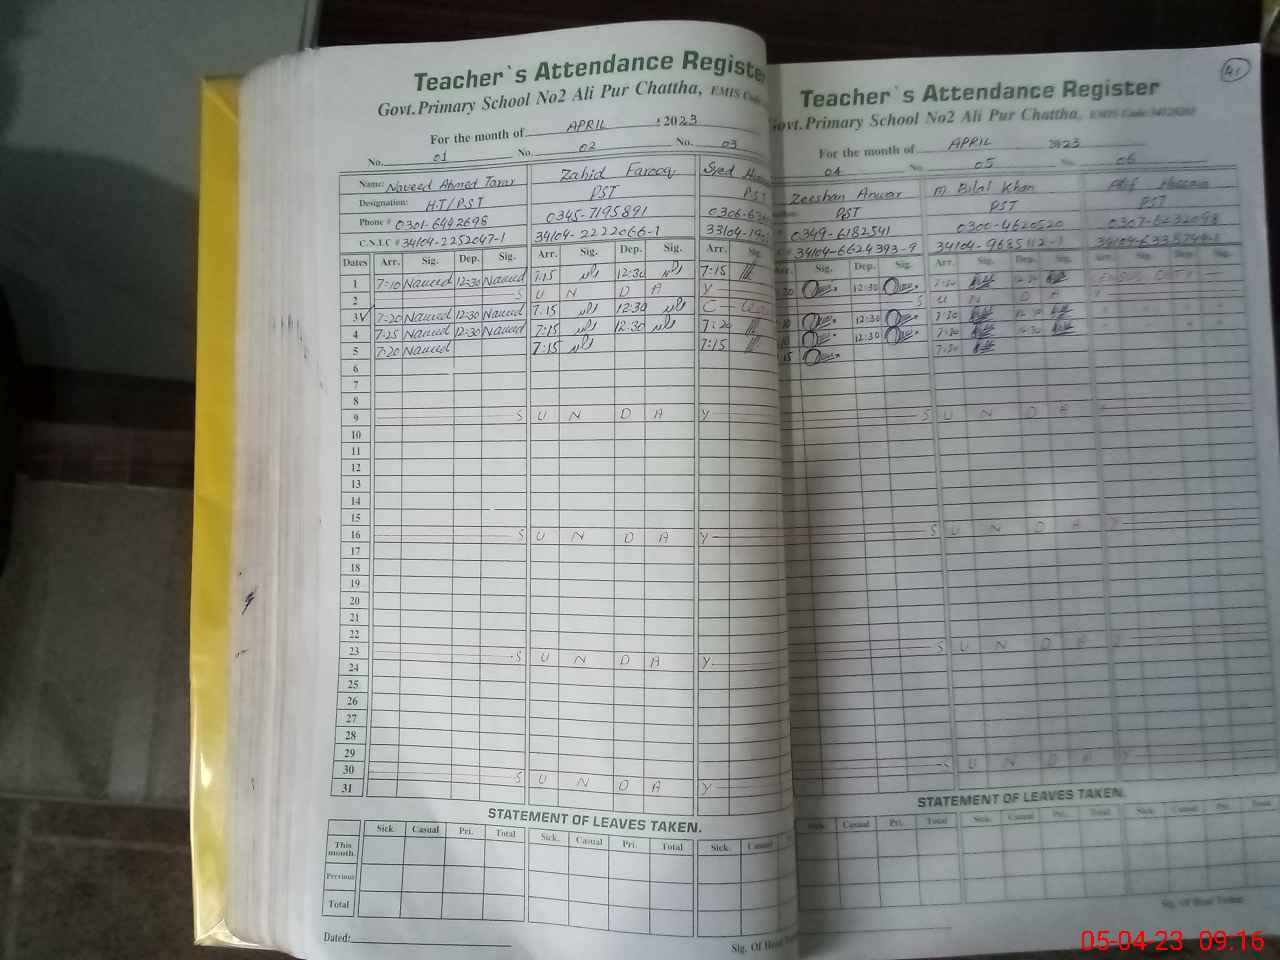 Teacher`s Attendance Registe
Govt.Primary School No2 Ali Pur Chattha, EMIS Code
For the month of APRIL 2023
No. 01 No. 02 No. 03
Name: Naveed Ahmed Tarar Zahid Farooq Syed
Designation: HT/PST PST PST
Phone # 0301-6442696 0345-7195891 0306-
C.N.I.C # 34104-2252047-1 34104-2222066-1 33104-
Dates Arr. Sig. Dep. Sig. Arr. Sig. Dep. Sig. Arr. Sig.
1 7:10 Naveed 12:30 Naveed 7:15 12:30 7:15
2 S U N D A Y
3 7:20 Naveed 12:30 Naveed 7:15 12:30 C
4 7:25 Naveed 12:30 Naveed 7:15 12:30 7:20
5 7:20 Naveed 7:15 7:15
6
7
8
9 S U N D A Y
10
11
12
13
14
15
16 S U N D A Y
17
18
19
20
21
22
23 S U N D A Y
24
25
26
27
28
29
30 S U N D A Y
31
STATEMENT OF LEAVES TAKEN.
Sick. Casual Pri. Total Sick. Casual Pri. Total Sick.
This month.
Previous
Total
Dated:
Sig. Of
41
Teacher`s Attendance Register
Govt.Primary School No2 Ali Pur Chattha, EMIS Code
For the month of APRIL 2023
04 No. 05 No. 06
Zeeshan Anwar M. Bilal Khan Atif Hussain
PST PST PST
0349-6182541 0300-4620520 0307-6232098
34104-6624393-9 34104-9685112-1
Arr. Sig. Dep. Sig. Arr. Sig. Dep. Sig. Arr. Sig. Dep. Sig.
12:30 7:20 12:30
S U N D A Y
12:30 7:20 12:30
12:30 7:20 12:30
7:20
S U N D A Y
S U N D A Y
S U N D A Y
S U N D A Y
STATEMENT OF LEAVES TAKEN.
Sick. Casual Pri. Total Sick. Casual Pri. Total Sick. Casual Pri. Total
Sig. Of Head
05-04-23 09:16